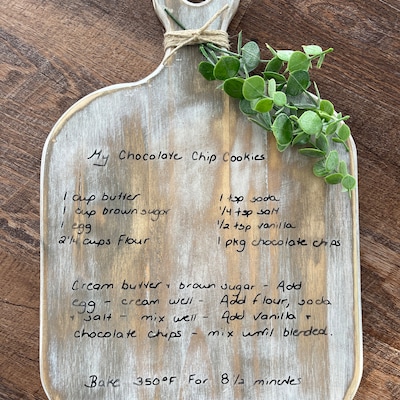 My Chocolate Chip Cookies
1 cup butter
1 cup brown sugar
1 egg
2 1/4 cups flour
1 tsp soda
1/4 tsp salt
1/2 tsp vanilla
1 pkg chocolate chips
Cream butter + brown sugar - Add
egg - cream well - Add flour, soda
+ salt - mix well - Add vanilla +
chocolate chips - mix until blended.
Bake 350°F For 8 1/2 minutes